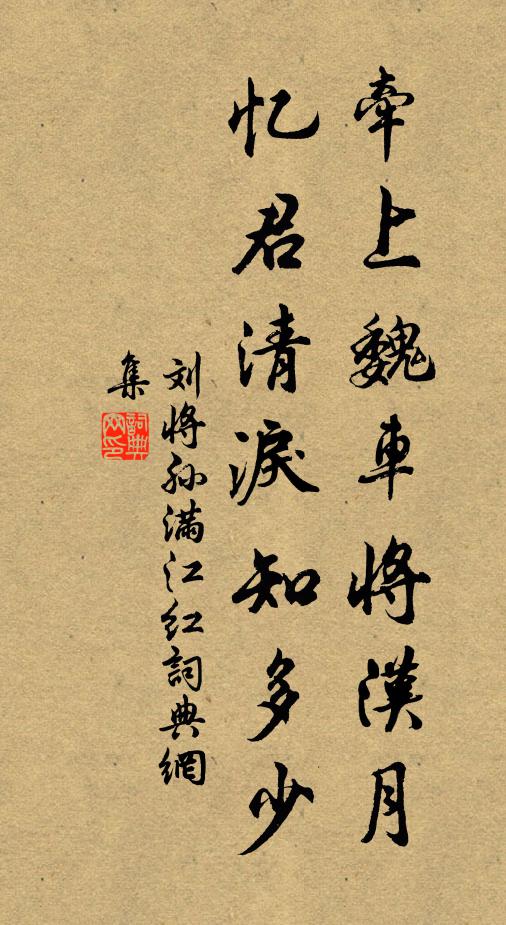 牵上魏车将汉月
忆君清淚知多少
刘将孙满江红詞典網
集
詞典網印